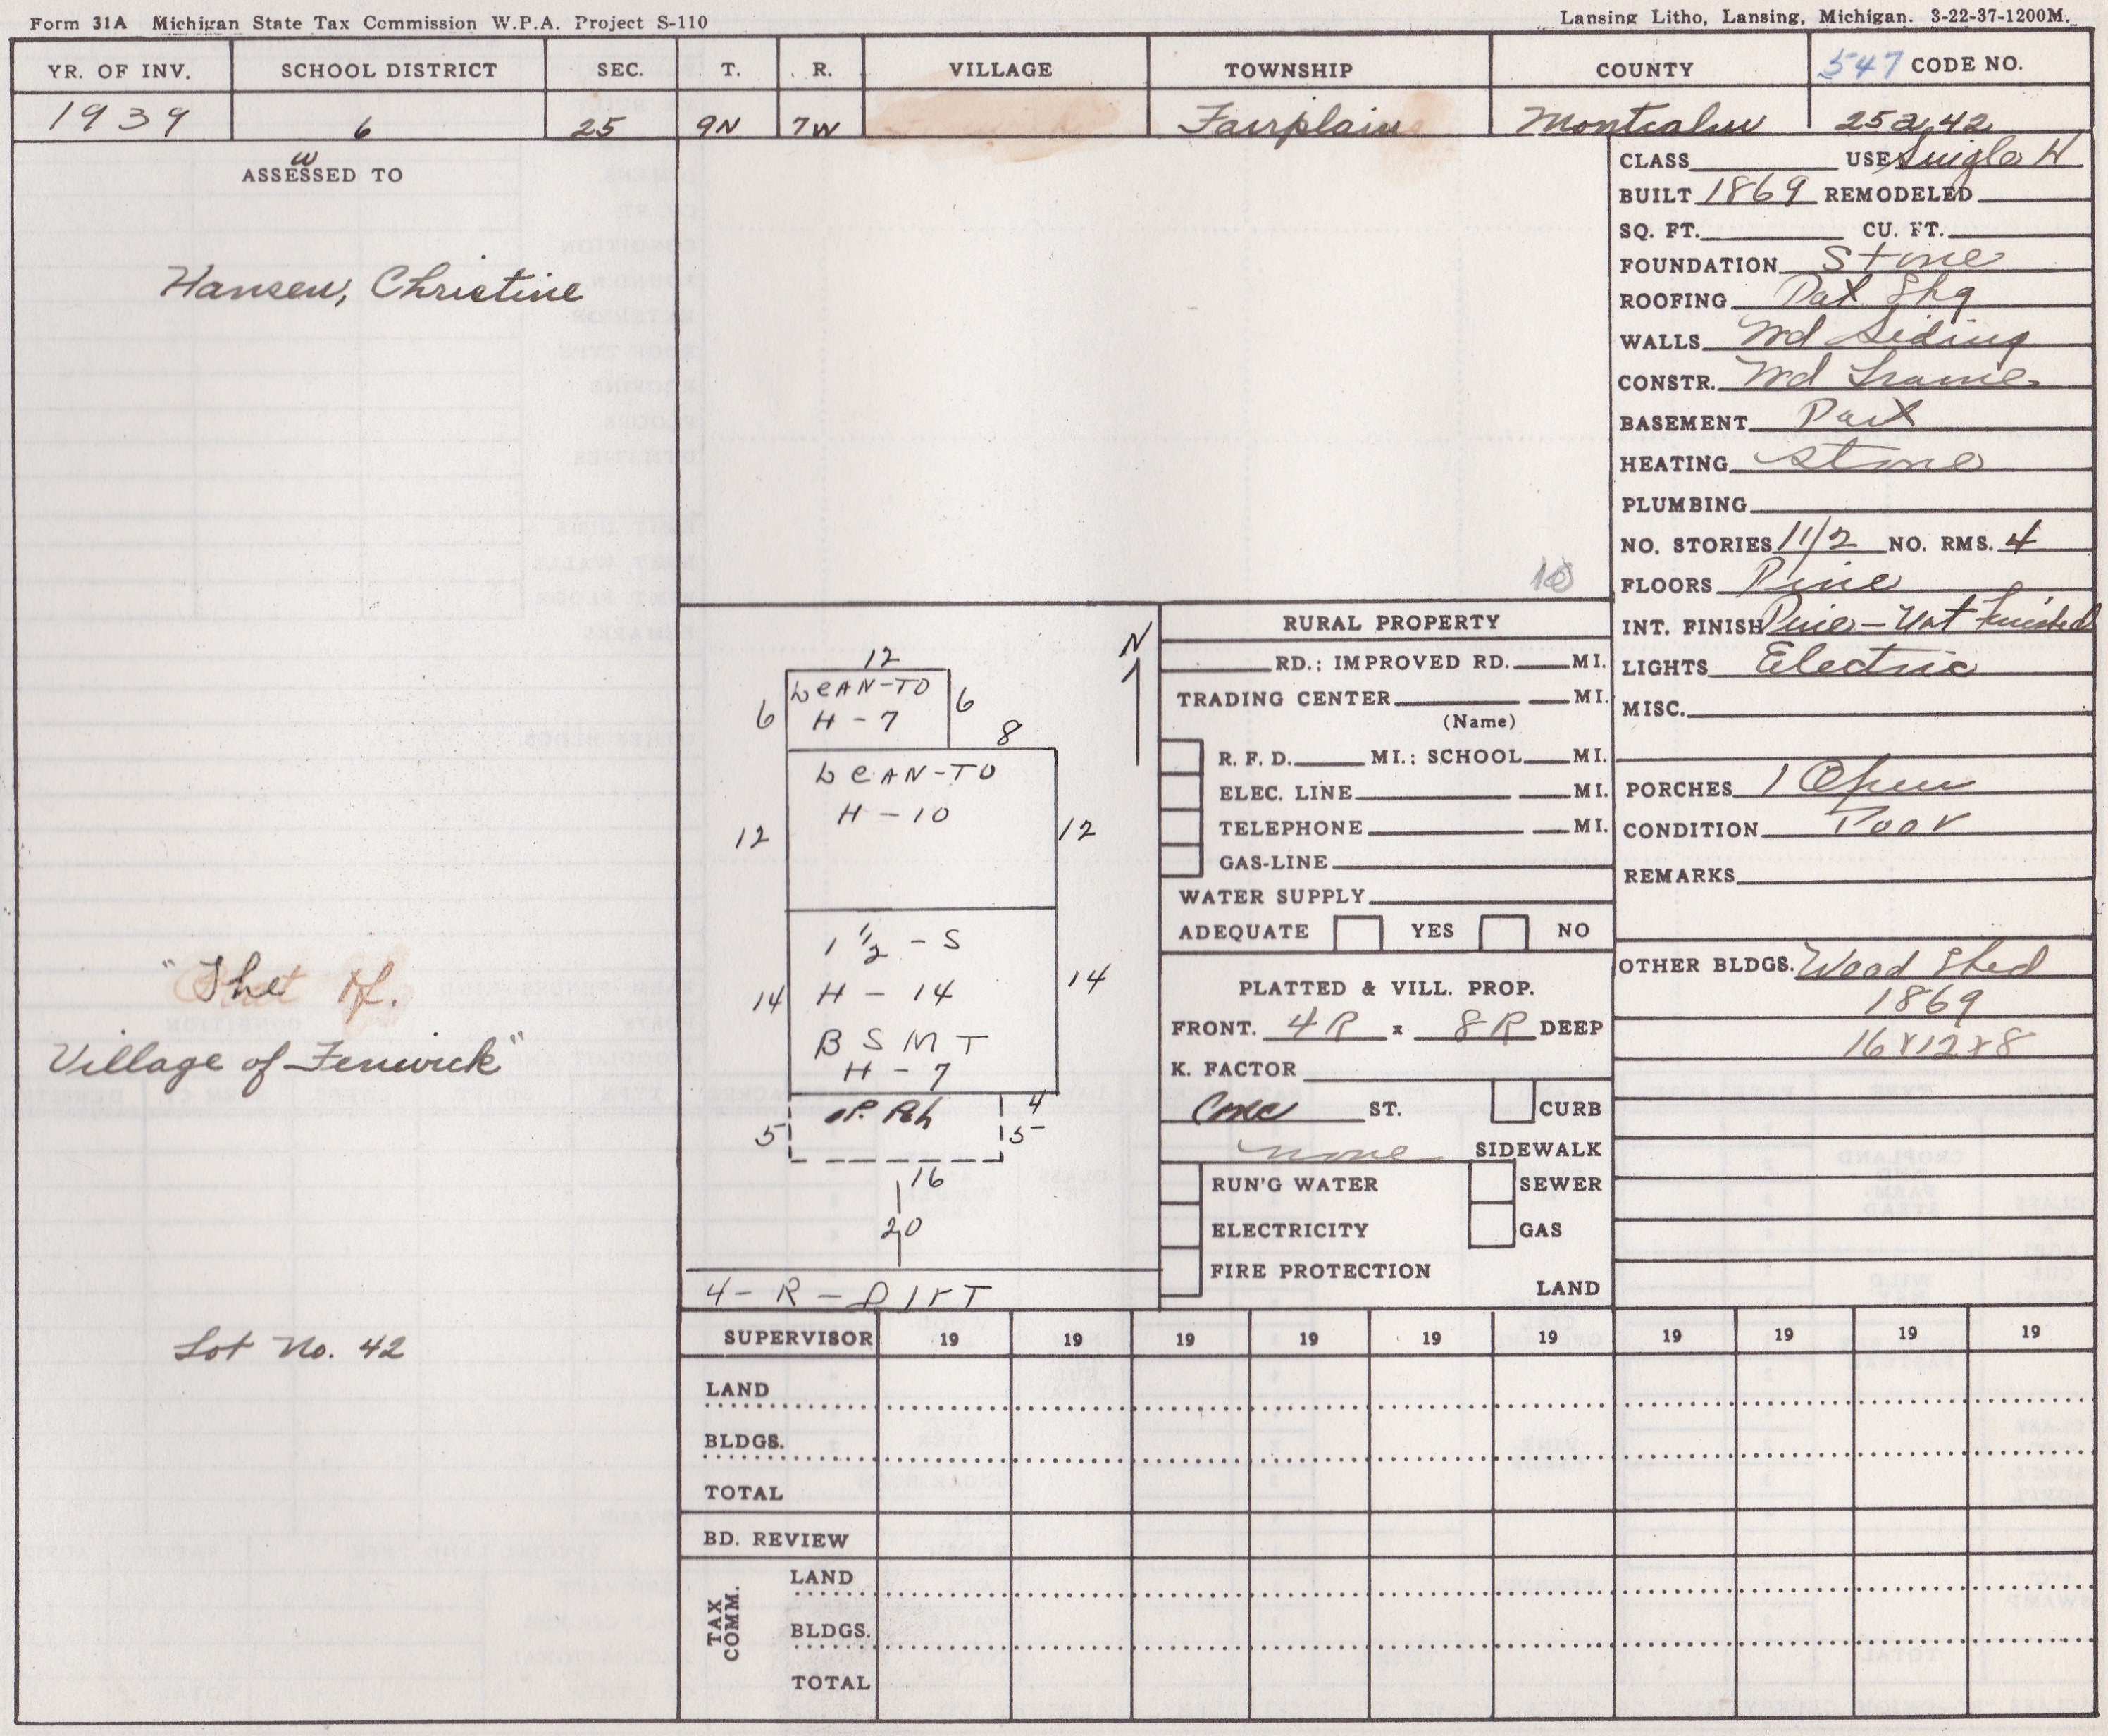 Form 31A Michigan State Tax Commission W.P.A. Project S-110
Lansing Litho, Lansing, Michigan. 3-22-37-1200M.
YR. OF INV. SCHOOL DISTRICT SEC. T. R. VILLAGE TOWNSHIP COUNTY 547 CODE NO.
1939 6 25 9N 7W Fairplain Montcalm 25242
W
ASSESSED TO
Hansen, Christine
"The
Village of Fenwick"
Lot No. 42
CLASS USE Single H
BUILT 1869 REMODELED
SQ. FT. CU. FT.
FOUNDATION Stone
ROOFING Pat Shg
WALLS Wd Siding
CONSTR. Wd Frame
BASEMENT Part
HEATING Stove
PLUMBING
NO. STORIES 1 1/2 NO. RMS. 4
FLOORS Pine
INT. FINISH Pine - Nat Finished
LIGHTS Electric
MISC.
PORCHES 1 Open
CONDITION Poor
REMARKS
OTHER BLDGS. Wood Shed
1869
16x12x8
10
N
12
LEAN-TO
6 H - 7 6
8
LEAN-TO
H - 10
12 12
1 1/2 - S
14 H - 14 14
BSMT
H - 7
OP. Pch 4
5 5
16
20
4 - R - DIRT
RURAL PROPERTY
RD.; IMPROVED RD. MI.
TRADING CENTER MI.
(Name)
R. F. D. MI.; SCHOOL MI.
ELEC. LINE MI.
TELEPHONE MI.
GAS-LINE
WATER SUPPLY
ADEQUATE YES NO
PLATTED & VILL. PROP.
FRONT. 4R x 8R DEEP
K. FACTOR
Conc ST. CURB
none SIDEWALK
RUN'G WATER SEWER
ELECTRICITY GAS
FIRE PROTECTION
LAND
SUPERVISOR 19 19 19 19 19 19 19 19 19 19
LAND
BLDGS.
TOTAL
BD. REVIEW
TAX COMM.
LAND
BLDGS.
TOTAL